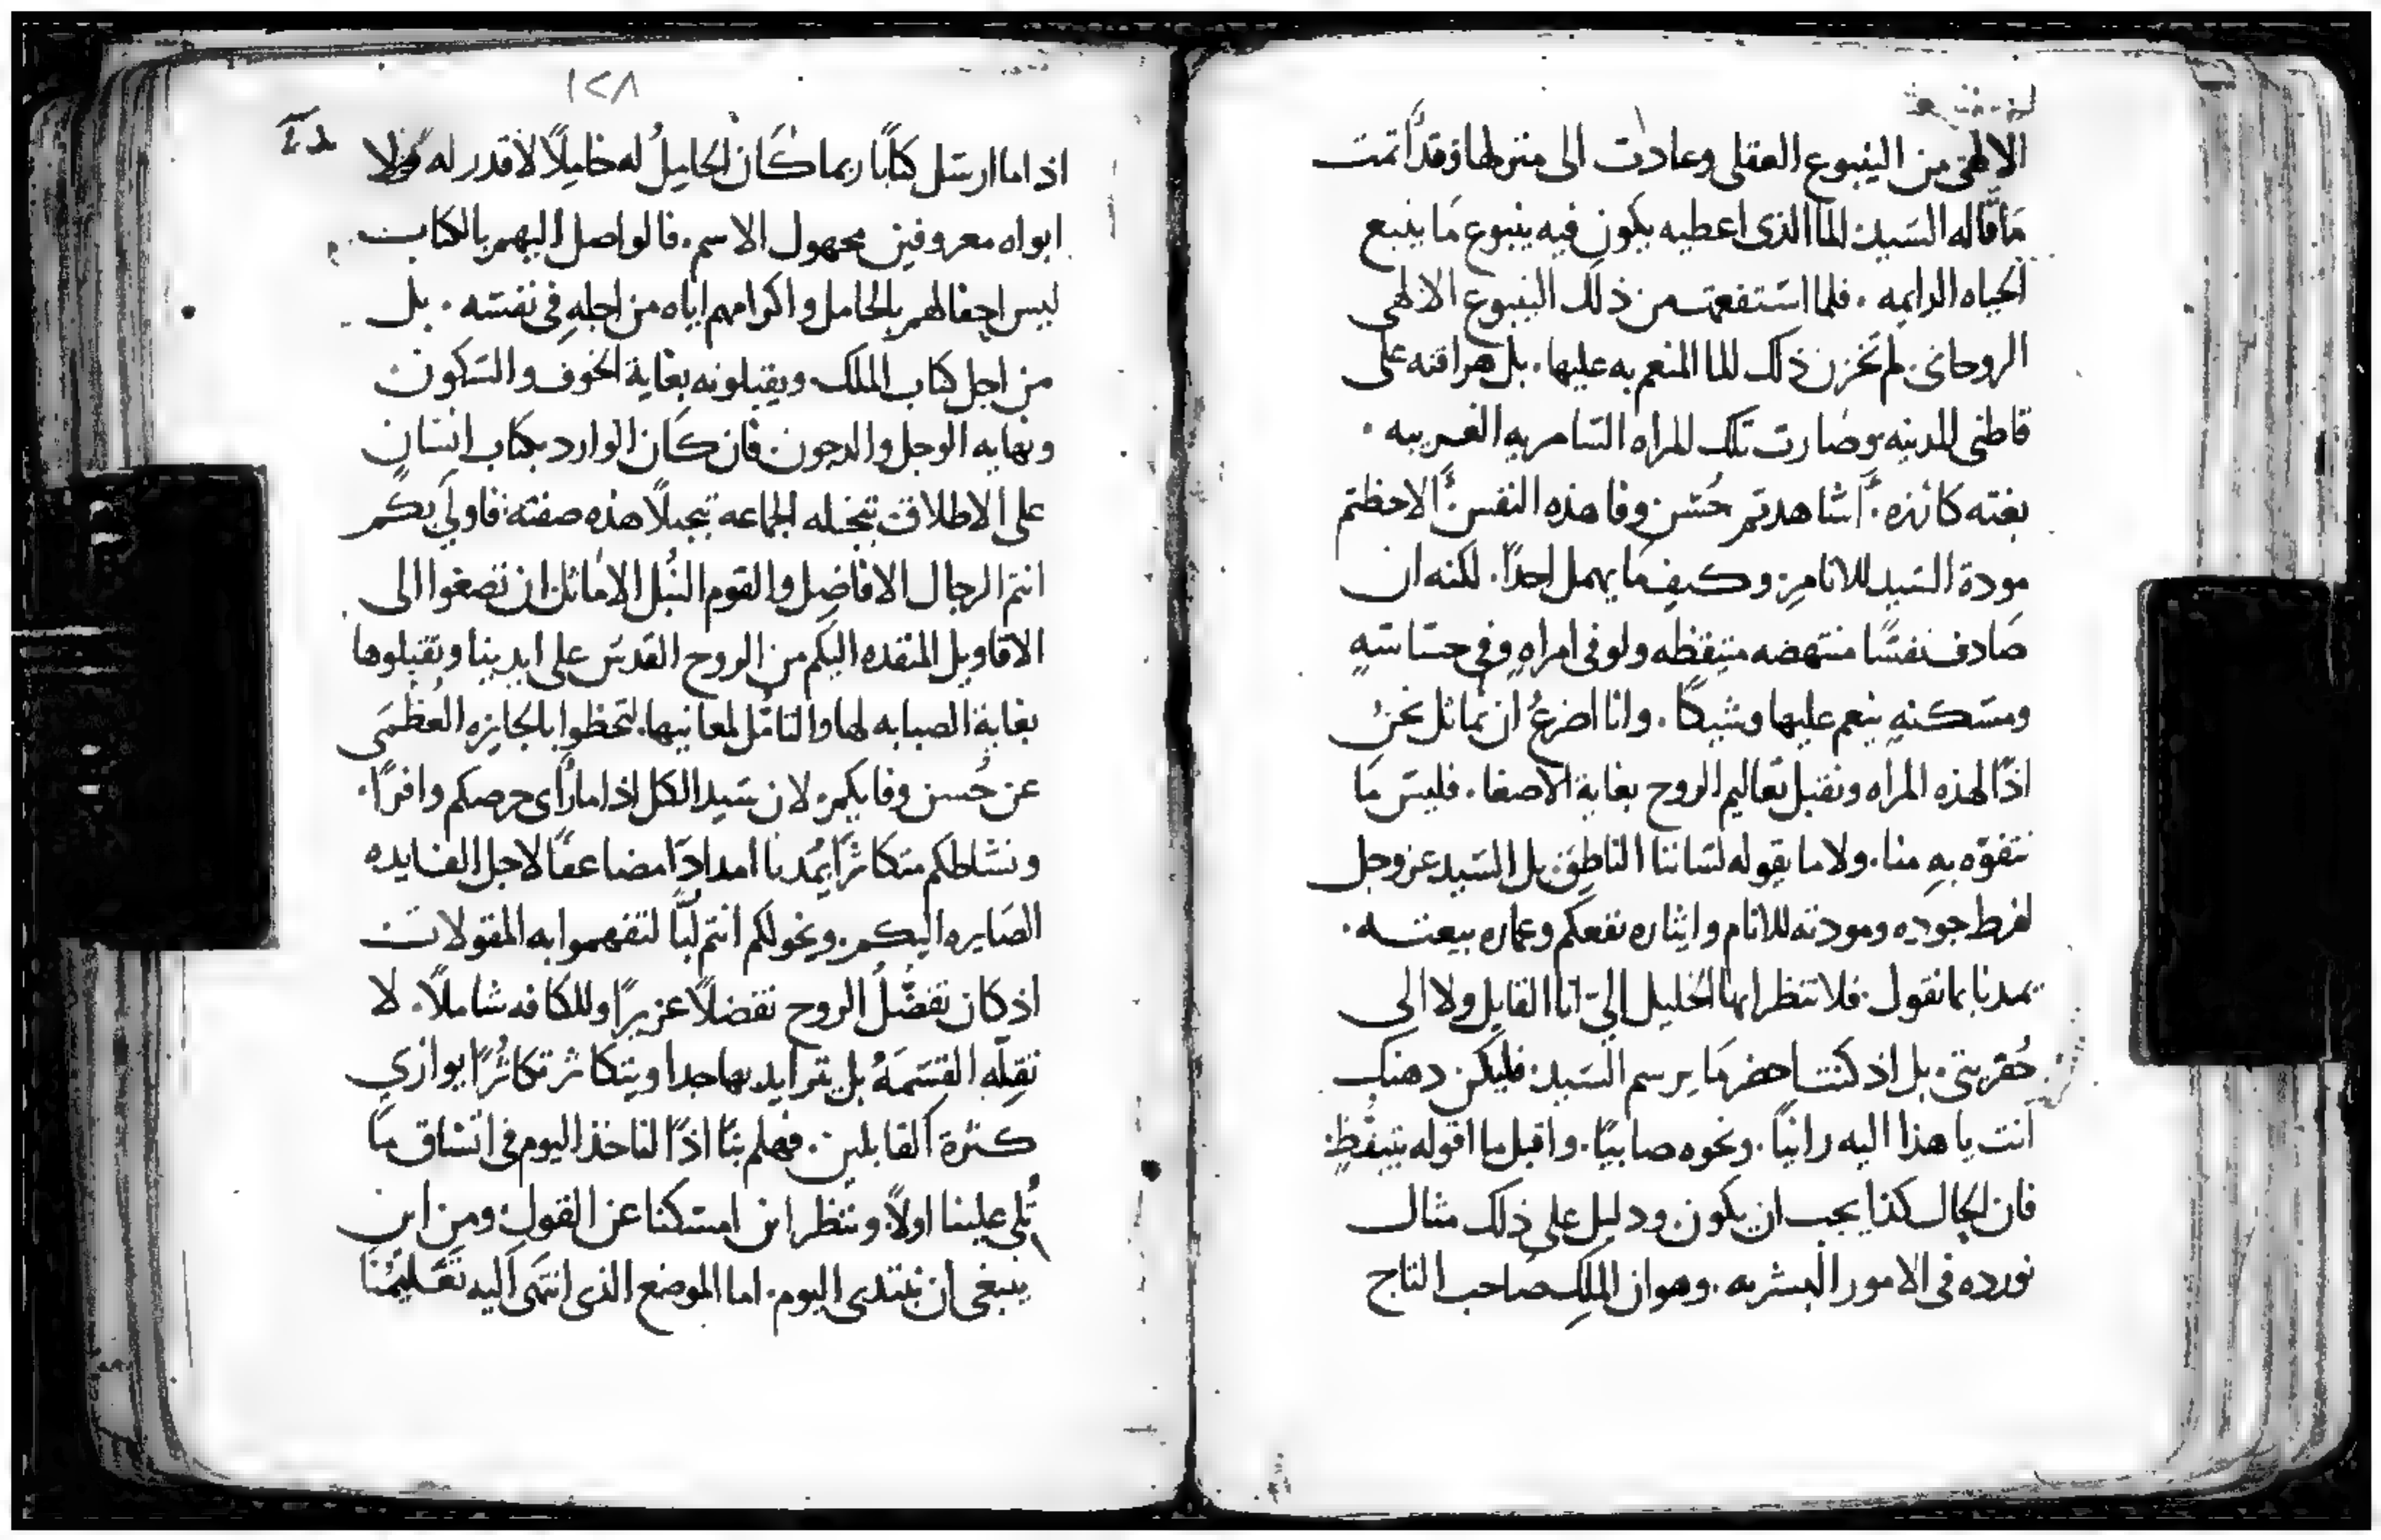 الالهي من الينبوع العقلي وعادت الى منزلها وقد اتمت
ما قاله السيد الما الذى اعطيه يكون فيه ينبوع ما ينبع
الحياه الدايمه . فلما استنفعت من ذلك الينبوع الالهى
الروحانى . لم تخزن ذلك الما المنعم به عليها . بل هراقته على
قاطنى المدينه وصارت تلك المراه السامريه الغريبه .
بغته كارزه . أشاهدتم حُسن وفا هذه النفس ألاحظتم
مودة السيد للانام وكيف ما يهمل احدًا . لكنه ان
صادف نفسًا منتهضه متيقظه ولو فى امراهٍ وفى خساسةٍ
ومسكنهٍ ينعم عليها وشيكًا . وانا اضرعُ ان نماثل نحنُ
اذًا لهذه المراه ونقبل تعاليم الروح بغاية الاصغا . فليس ما
نتفوّه بهِ منا . ولا ما يقوله لساننا الناطق بل السيد عز وجل
لفرط جوده ومودته للانام وايثاره نفعكم وعماره بيعتـه .
يمدنا بما نقول . فلا تنظر ايها الخليل اليّ انا القايل ولا الى
حُقريتى . بل اذ كنت احضر ما يرسم السيد . فليكن ذهنك
انت يا هذا اليه رانيًا . ونحوه صابيًا . واقبل ما اقوله بتيقُّظٍ
فان الحال كذا يجب ان يكون ودليل على ذلك مثال
نورده فى الامور البشريه . وهو ان الملكِ صاحب التاج
١٢٨
اذا ما ارسَل كتابًا ربما كان الحامِلُ له خاملًا لا قدر له ولا
ابواه معروفين مجهول الاسم . فالواصل اليهم بالكتاب
ليس احفالهم بالحامل واكرامهم اياه من اجلهِ فى نفسه . بل
من اجل كتاب الملك ويقبلونه بغاية الخوف والسكون
ونهايه الوجل والدجون فان كان الوارد بكتاب انسان
على الاطلاق تبجله الجماعه تبجيلًا هذه صفته . فاولى بكم
انتم الرجال الافاضِل والقوم النُبل الاماثل ان تصغوا الى
الاقاويل المنفذه اليكم من الروح القدس على ايدينا وتقبلوها
بغاية الصبابه لها والتامُّل لمعانيها . لتحظوا بالجايزه العُظمَى
عن حُسن وفايكم . لان سَيد الكل اذا ما رأى حرصكم وافرًا .
ونشاطكم متكاثرًا يُمدنا امدادًا مضاعفًا لاجل الفايده
الصَايره اليكم . ويخولكم انتم لبًّا لتفهموا به المقولات
اذ كان تفضُّلُ الروح تفضلًا عزيرًا وللكافه شاملًا . لا
تقِلّه القسَمَهُ بل تتزايد بها جدا ويتكاثر تكاثُرًا يوازي
كثرة القابلين . فهلم بنا اذًا لناخذ اليوم فى اتساق ما
تُلي علينا اولًا . وننظر اين امسَكنا عن القول ومن اين
ينبغى ان نبتدى اليوم . اما الموضع الذى انتهَى اليه تعَليمُنا